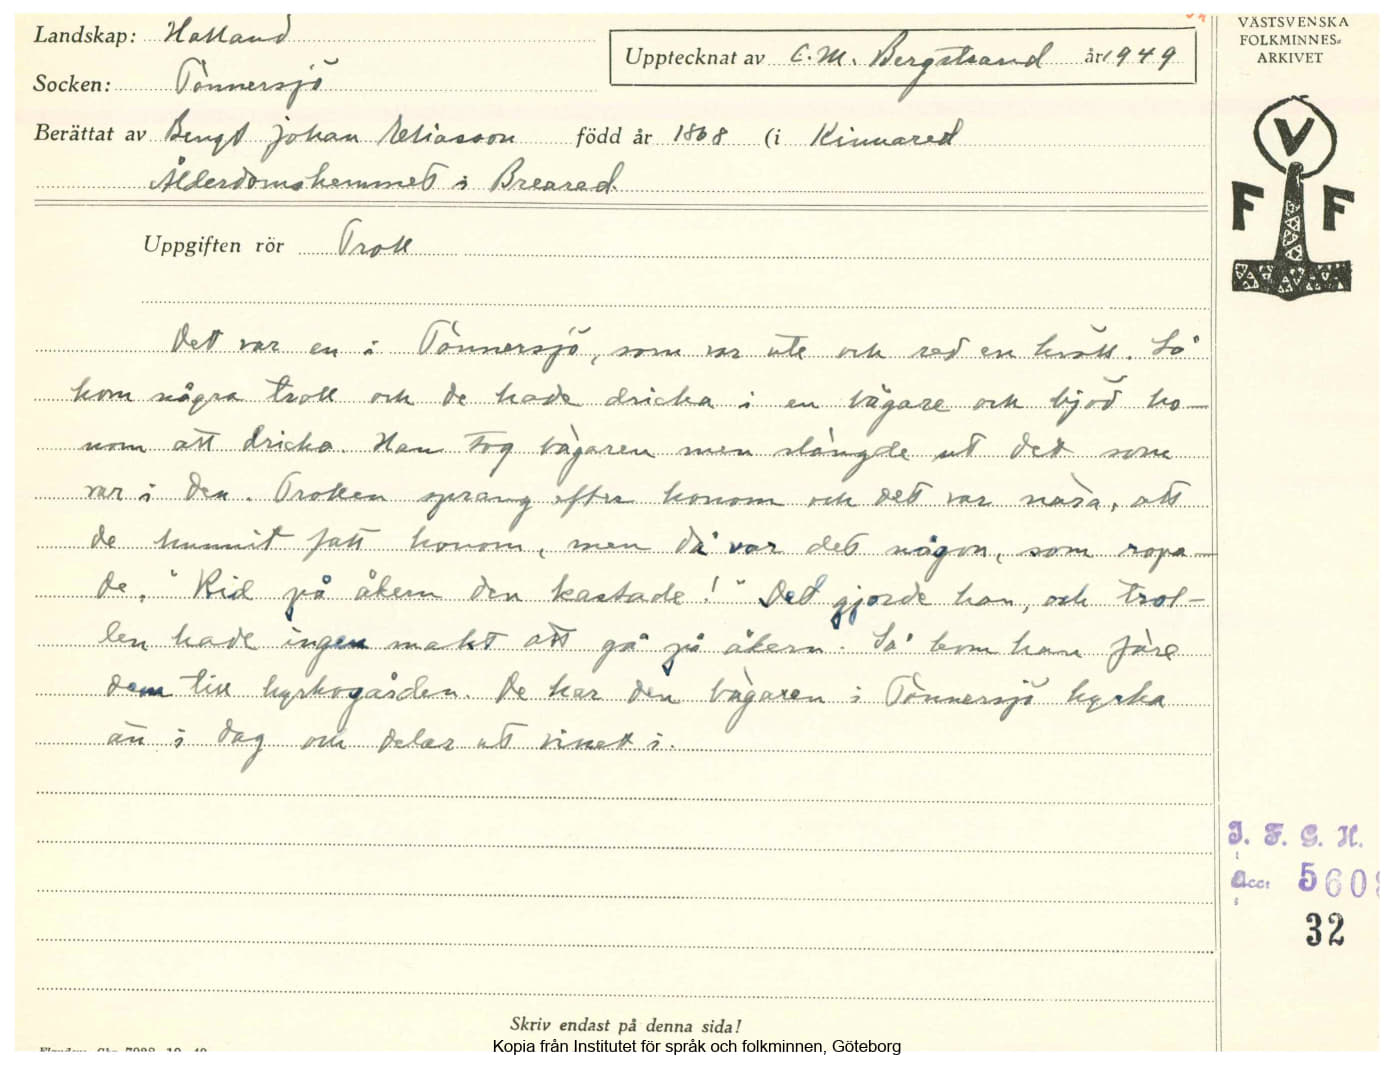 Landskap: Halland
Upptecknat av C. M. Bergstrand år 1949
Socken: Tönnersjö
Berättat av Bengt Johan Eliasson född år 1868 (i Kinnared
Ålderdomshemmet i Breared.
Uppgiften rör Troll
Det var en i Tönnersjö, som var ute och red en kväll. Så
kom några troll och de hade dricka i en bägare och bjöd ho-
nom att dricka. Han tog bägaren men slängde ut det som
var i den. Trollen sprang efter honom och det var nära, att
de hunnit fatt honom, men då var det någon, som ropa-
de, "Rid på åkern den kastade!" Det gjorde han, och trol-
len hade ingen makt att gå på åkern. Så kom han före
dem till kyrkogården. De har den bägaren i Tönnersjö kyrka
än i dag och delar ut vinet i.
Skriv endast på denna sida!
Kopia från Institutet för språk och folkminnen, Göteborg
VÄSTSVENSKA
FOLKMINNES-
ARKIVET
V
F F
I. F. G. H.
Acc: 5609
32